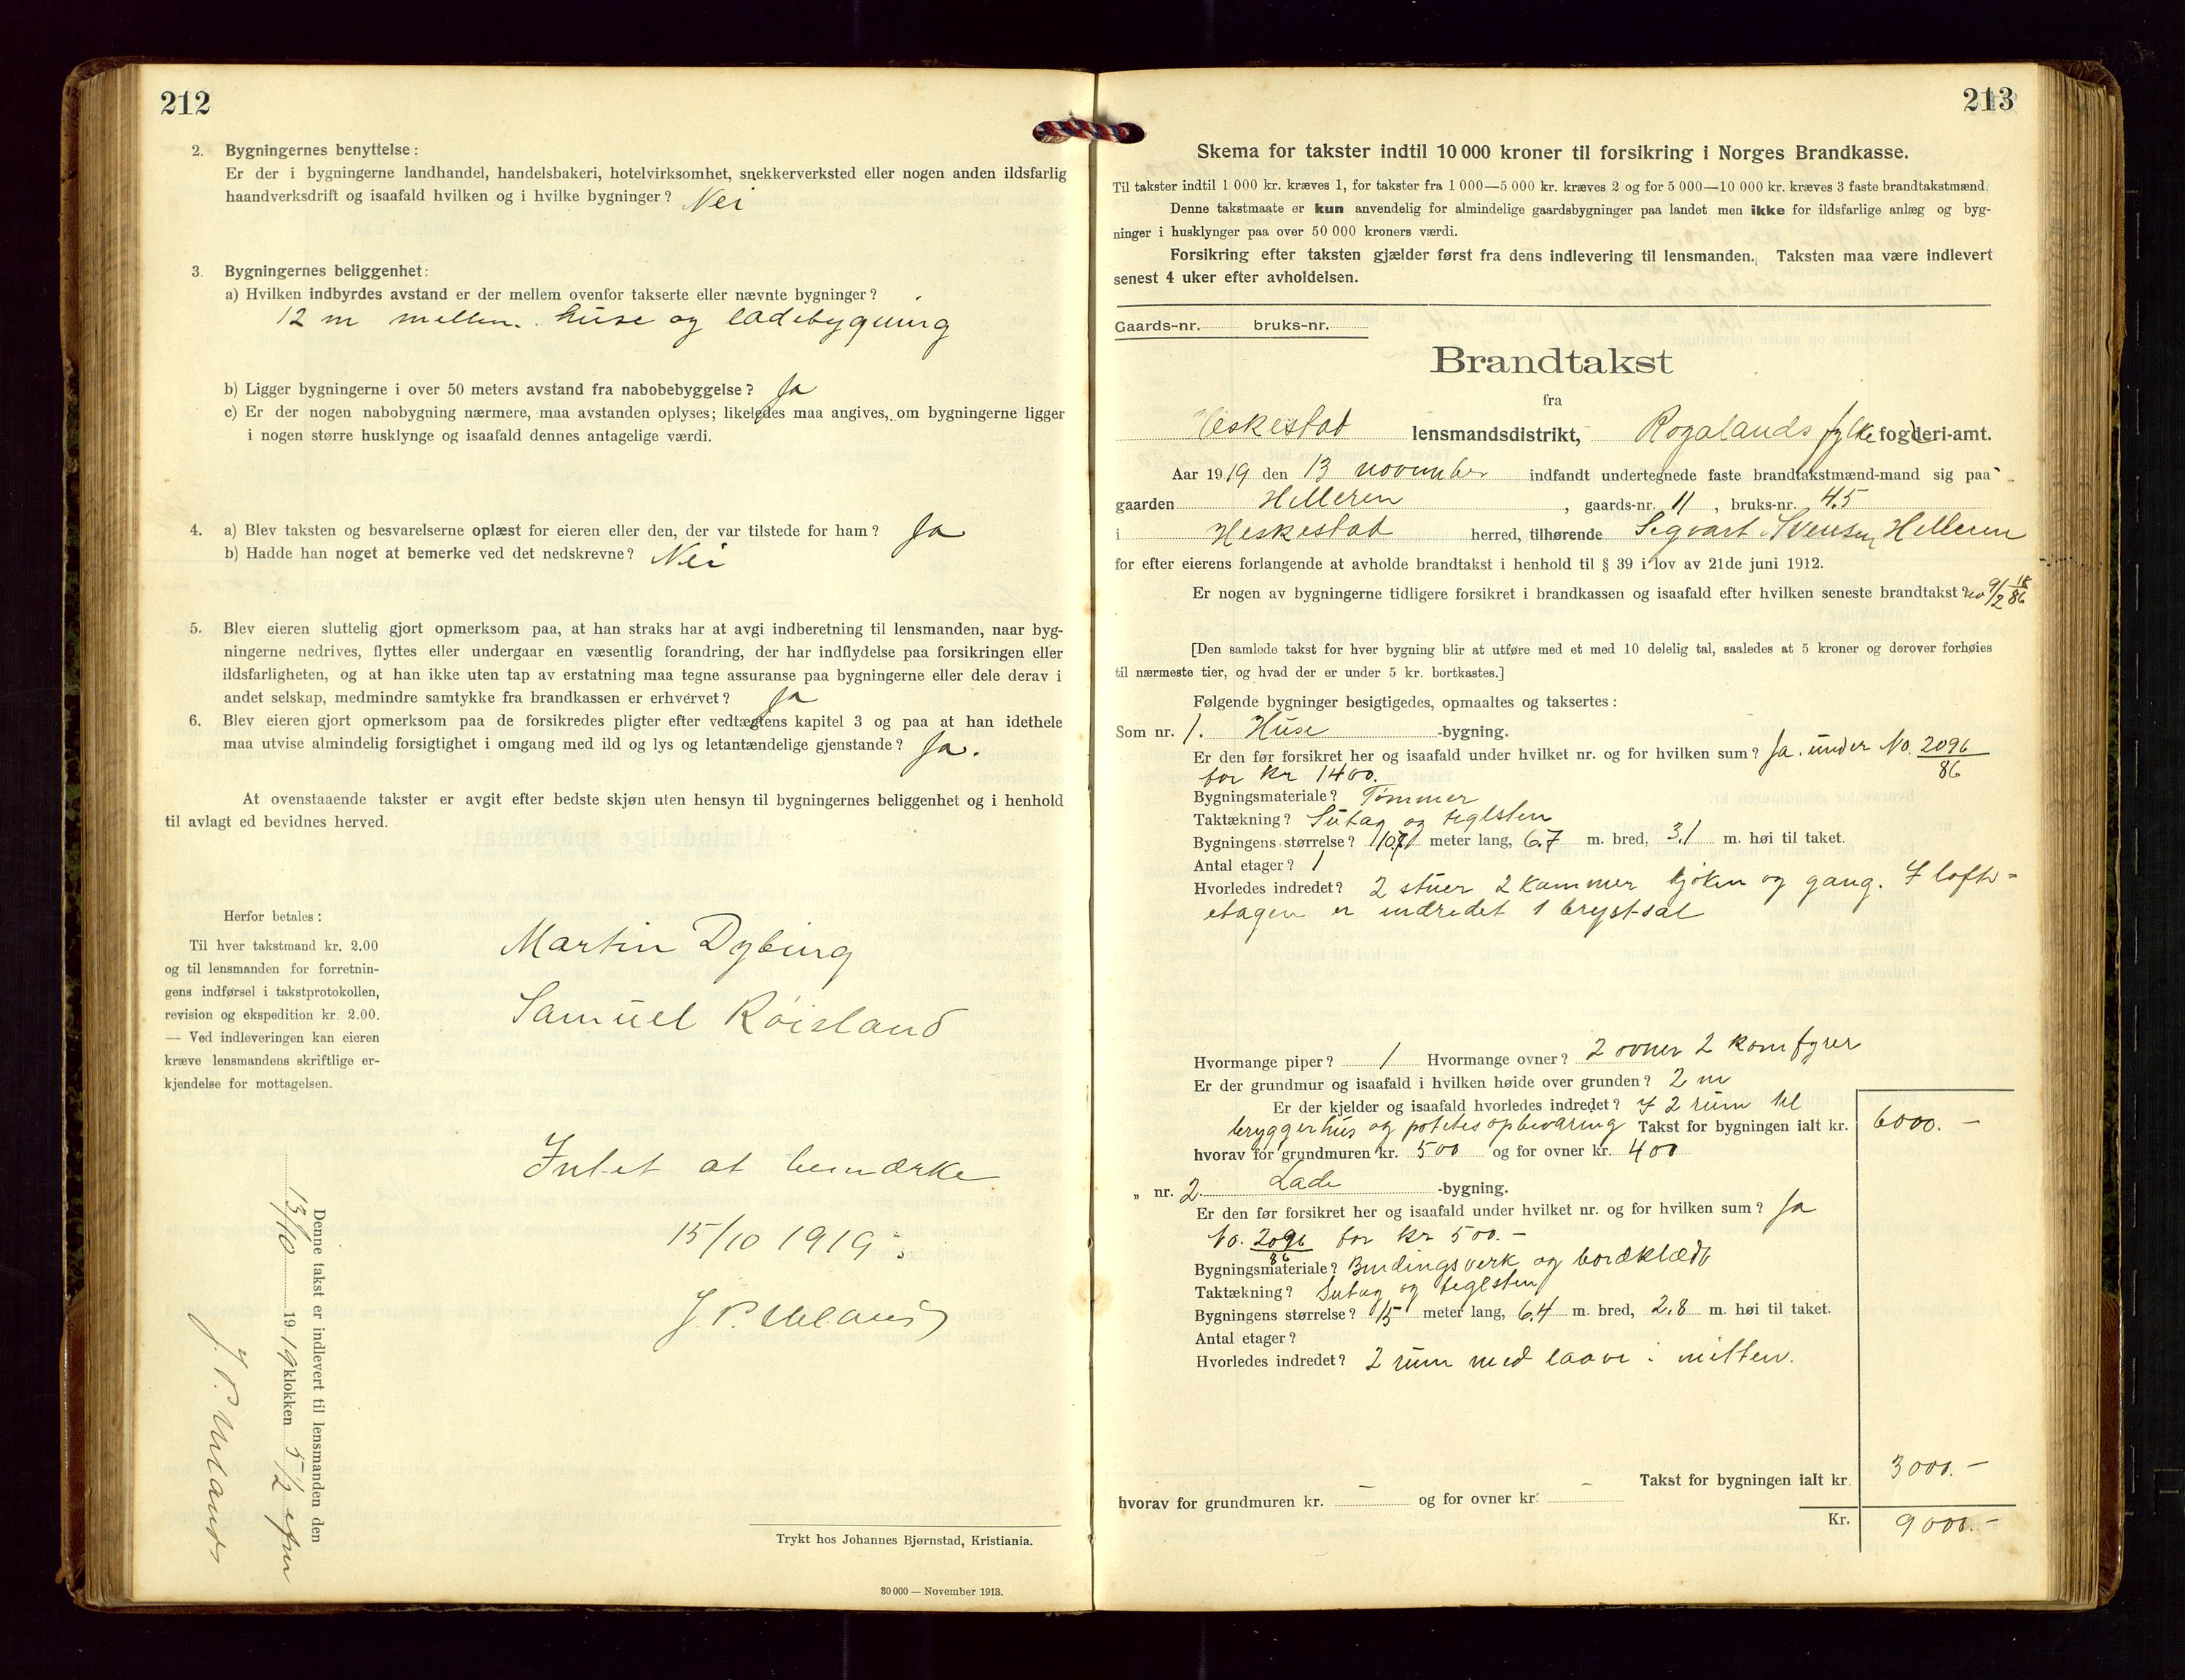 212
2. Bygningernes benyttelse:
Er der i bygningerne landhandel, handelsbakeri, hotelvirksomhet, snekkerverksted eller nogen anden ildsfarlig
haandverksdrift og isaafald hvilken og i hvilke bygninger? Nei
3. Bygningernes beliggenhet:
a) Hvilken indbyrdes avstand er der mellem ovenfor takserte eller nævnte bygninger?
12 m mellem huse og ladebygning
b) Ligger bygningerne i over 50 meters avstand fra nabobebyggelse? Ja
c) Er der nogen nabobygning nærmere, maa avstanden oplyses; likeledes maa angives, om bygningerne ligger
i nogen større husklynge og isaafald dennes antagelige værdi.
4. a) Blev taksten og besvarelserne oplæst for eieren eller den, der var tilstede for ham? Ja
b) Hadde han noget at bemerke ved det nedskrevne? Nei
5. Blev eieren sluttelig gjort opmerksom paa, at han straks har at avgi indberetning til lensmanden, naar byg-
ningerne nedrives, flyttes eller undergaar en væsentlig forandring, der har indflydelse paa forsikringen eller
ildsfarligheten, og at han ikke uten tap av erstatning maa tegne assuranse paa bygningerne eller dele derav i
andet selskap, medmindre samtykke fra brandkassen er erhvervet? Ja
6. Blev eieren gjort opmerksom paa de forsikredes pligter efter vedtægtens kapitel 3 og paa at han idethele
maa utvise almindelig forsigtighet i omgang med ild og lys og letantændelige gjenstande? Ja.
At ovenstaaende takster er avgit efter bedste skjøn uten hensyn til bygningernes beliggenhet og i henhold
til avlagt ed bevidnes herved.
Herfor betales:
Til hver takstmand kr. 2.00
og til lensmanden for forretnin-
gens indførsel i takstprotokollen,
revision og ekspedition kr. 2.00.
— Ved indleveringen kan eieren
kræve lensmandens skriftlige er-
kjendelse for mottagelsen.
Martin Dybing
Samuel Røisland
Intet at bemærke
15/10 1919
Denne takst er indlevert til lensmanden den
13/10 1919 klokken 5 1/2 efm
Trykt hos Johannes Bjørnstad, Kristiania.
30 000 — November 1913.
213
Skema for takster indtil 10 000 kroner til forsikring i Norges Brandkasse.
Til takster indtil 1 000 kr. kræves 1, for takster fra 1 000—5 000 kr. kræves 2 og for 5 000—10 000 kr. kræves 3 faste brandtakstmænd.
Denne takstmaate er kun anvendelig for almindelige gaardsbygninger paa landet men ikke for ildsfarlige anlæg og byg-
ninger i husklynger paa over 50 000 kroners værdi.
Forsikring efter taksten gjælder først fra dens indlevering til lensmanden. Taksten maa være indlevert
senest 4 uker efter avholdelsen.
Gaards-nr. bruks-nr.
Brandtakst
fra
Heskestad lensmandsdistrikt, Rogalands fylke fogderi-amt.
Aar 1919 den 13 november indfandt undertegnede faste brandtakstmænd-mand sig paa
gaarden Helleren, gaards-nr. 11, bruks-nr. 4.5
i Heskestad herred, tilhørende Segvart Svensen Helleren
for efter eierens forlangende at avholde brandtakst i henhold til § 39 i lov av 21de juni 1912.
Er nogen av bygningerne tidligere forsikret i brandkassen og isaafald efter hvilken seneste brandtakst? 9/2 18 86
[Den samlede takst for hver bygning blir at utføre med et med 10 delelig tal, saaledes at 5 kroner og derover forhøies
til nærmeste tier, og hvad der er under 5 kr. bortkastes.]
Følgende bygninger besigtigedes, opmaaltes og taksertes:
Som nr. 1. Huse -bygning.
Er den før forsikret her og isaafald under hvilket nr. og for hvilken sum? Ja. under No. 2096/86
for Kr 1400.
Bygningsmateriale? Tømmer
Taktækning? Sutag og teglsten
Bygningens størrelse? meter lang, 6.7 m. bred, 3.1 m. høi til taket.
Antal etager? 1
Hvorledes indredet? 2 stuer 2 kammer kjøken og gang. I lofts-
etagen er indredet 1 bryst-sal
Hvormange piper? 1 Hvormange ovner? 2 ovner 2 komfyrer
Er der grundmur og isaafald i hvilken høide over grunden? 2 m
Er der kjelder og isaafald hvorledes indredet? I 2 rum til
bryggerhus og potetesopbevaring Takst for bygningen ialt kr. 6000.—
hvorav for grundmuren kr. 500 og for ovner kr. 400
„ nr. 2. Lade -bygning.
Er den før forsikret her og isaafald under hvilket nr. og for hvilken sum? Ja
No. 2096/86 for Kr 500.—
Bygningsmateriale? Bindingsverk og bordklædt
Taktækning? Sutag og teglsten
Bygningens størrelse? 15 meter lang, 6.4 m. bred, 2.8 m. høi til taket.
Antal etager?
Hvorledes indredet? 2 rum med laave i mitten.
Takst for bygningen ialt kr. 3000.—
hvorav for grundmuren kr. — og for ovner kr. —
Kr. 9000.—